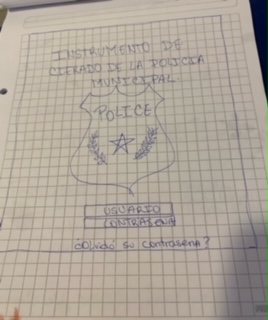 INSTRUMENTO DE
CIFRADO DE LA POLICIA
MUNICIPAL
POLICE
USUARIO
CONTRASEÑA
¿Olvidó su contraseña?